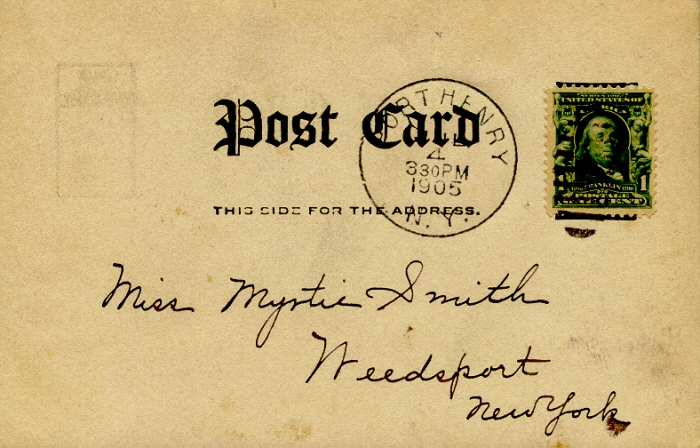 Post Card
PORT HENRY
4
330PM
1905
N.Y.
THIS SIDE FOR THE ADDRESS.
SERIES 1902
UNITED STATES OF
FRANKLIN
1 1
POSTAGE
ONE CENT
Miss Myrtie Smith
Weedsport
New York